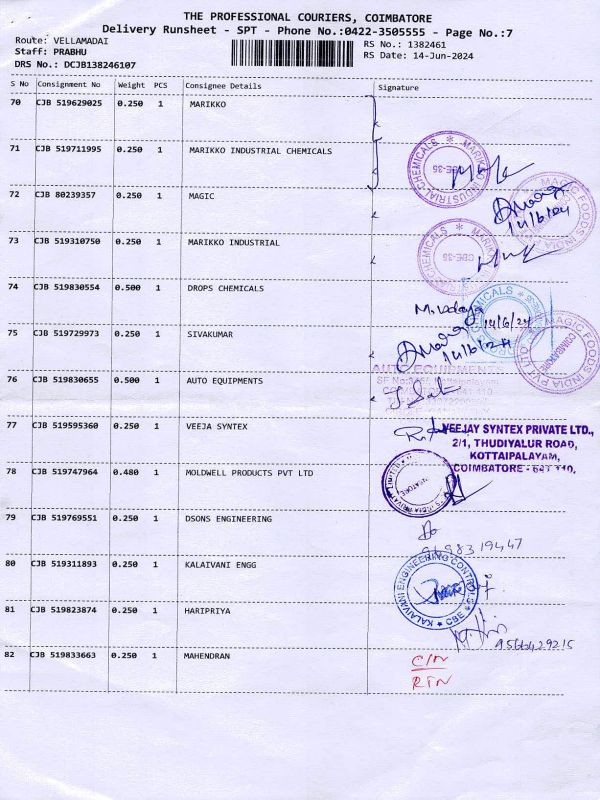 THE PROFESSIONAL COURIERS, COIMBATORE
Delivery Runsheet - SPT - Phone No.:0422-3505555 - Page No.:7
Route: VELLAMADAI
RS No.: 1382461
Staff: PRABHU
RS Date: 14-Jun-2024
DRS No.: DCJB138246107
S No Consignment No Weight PCS Consignee Details Signature
70 CJB 519629025 0.250 1 MARIKKO
71 CJB 519711995 0.250 1 MARIKKO INDUSTRIAL CHEMICALS
MARIKKO INDUSTRIAL CHEMICALS * CBE-35
72 CJB 80239357 0.250 1 MAGIC
MAGIC FOODS INDIA
14/6/24
73 CJB 519310750 0.250 1 MARIKKO INDUSTRIAL
CHEMICALS * MARIKK CBE-35
74 CJB 519830554 0.500 1 DROPS CHEMICALS
14/6/24
75 CJB 519729973 0.250 1 SIVAKUMAR
14/6/24
MAGIC FOODS INDIA PVT LTD COIMBATORE
76 CJB 519830655 0.500 1 AUTO EQUIPMENTS
AUTO EQUIPMENTS
77 CJB 519595360 0.250 1 VEEJA SYNTEX
VEEJAY SYNTEX PRIVATE LTD.,
2/1, THUDIYALUR ROAD,
KOTTAIPALAYAM,
COIMBATORE - 641 110.
78 CJB 519747964 0.480 1 MOLDWELL PRODUCTS PVT LTD
79 CJB 519769551 0.250 1 DSONS ENGINEERING
80 CJB 519311893 0.250 1 KALAIVANI ENGG
KALAIVANI ENGINEERING CONTROLS * CBE *
81 CJB 519823874 0.250 1 HARIPRIYA
9566429215
82 CJB 519833663 0.250 1 MAHENDRAN
C/N
RTN